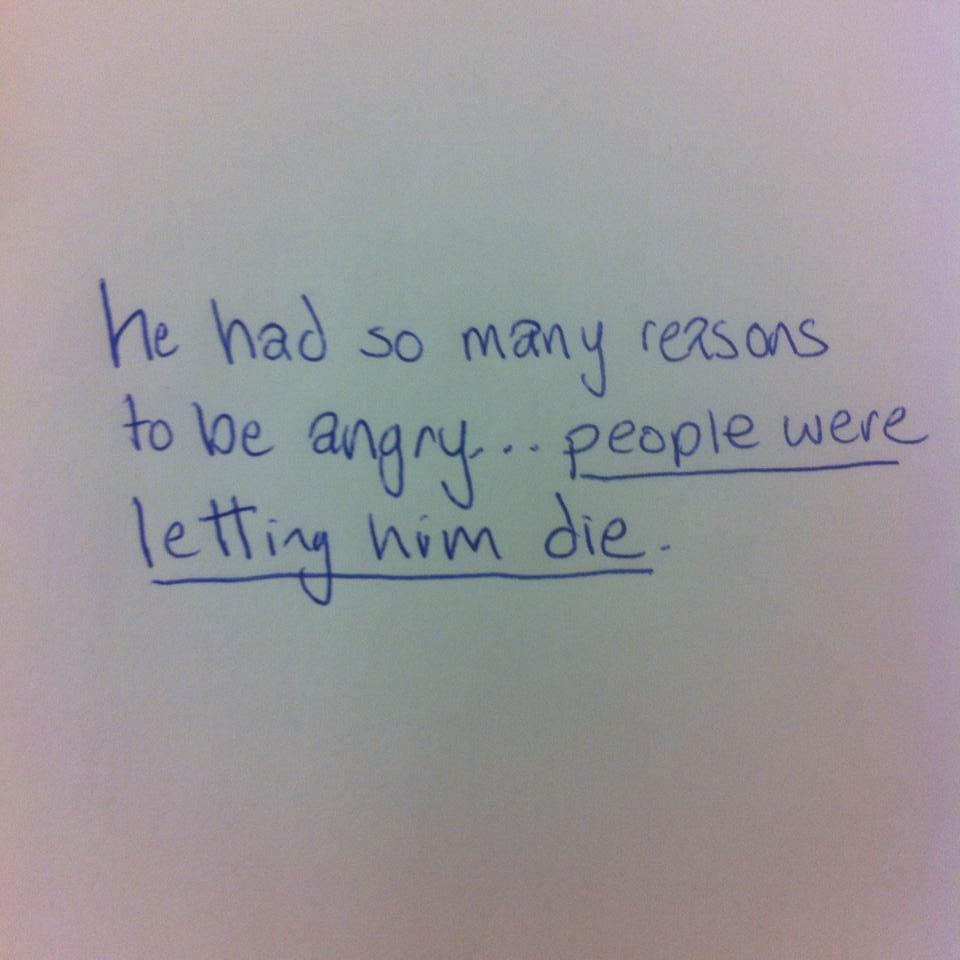 he had so many reasons
to be angry... people were
letting him die.